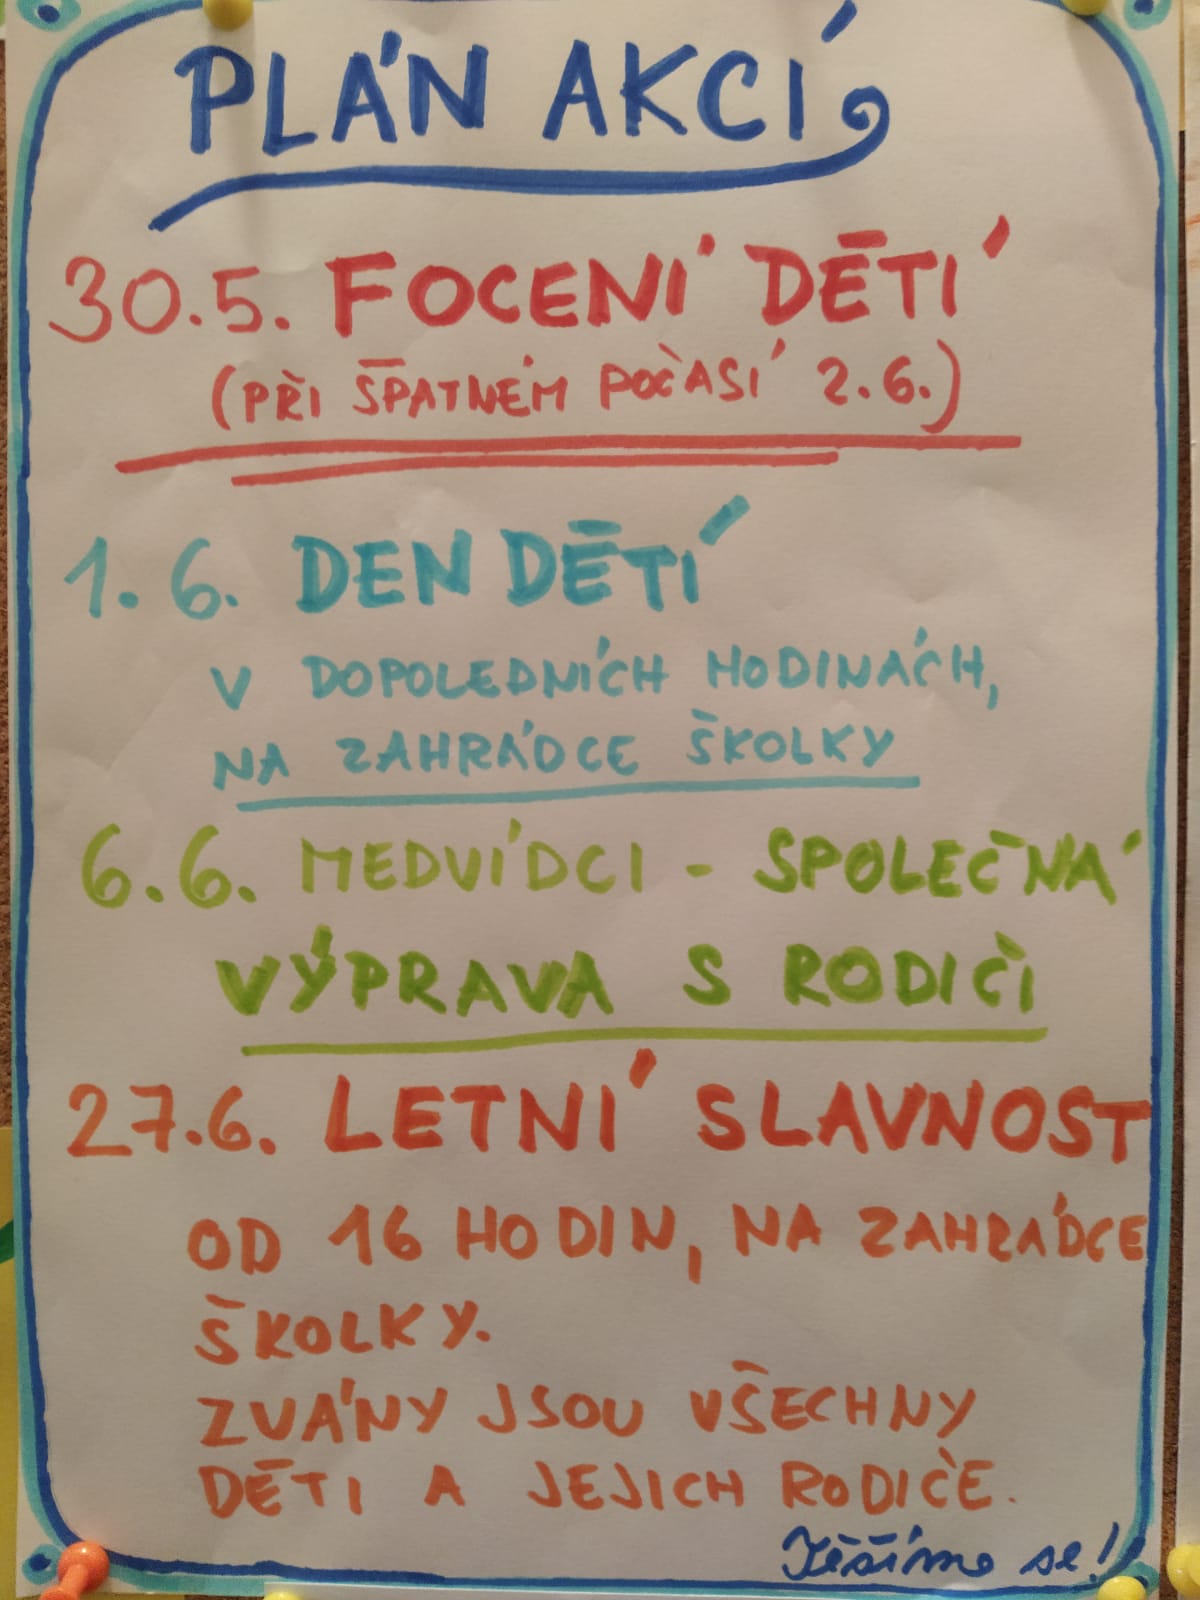 PLÁN AKCÍ
30.5. FOCENÍ DĚTÍ
(PŘI ŠPATNÉM POČASÍ 2.6.)
1.6. DEN DĚTÍ
V DOPOLEDNÍCH HODINÁCH,
NA ZAHRÁDCE ŠKOLKY
6.6. MEDVÍDCI - SPOLEČNÁ
VÝPRAVA S RODIČI
27.6. LETNÍ SLAVNOST
OD 16 HODIN, NA ZAHRÁDCE
ŠKOLKY.
ZVÁNY JSOU VŠECHNY
DĚTI A JEJICH RODIČE.
Těšíme se!